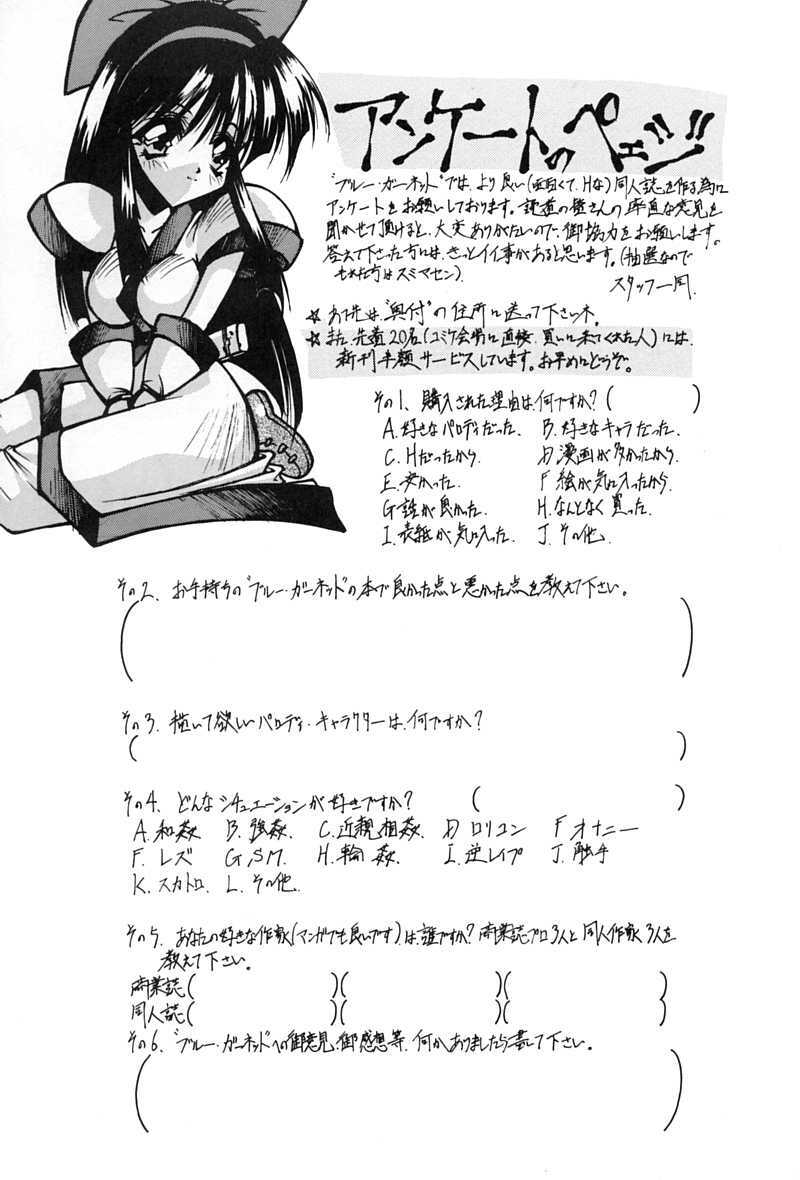 アンケートのページ!!
"ブルー・ガーネット"では、より良い(面白くて、Hな)同人誌を作る為に
アンケートをお願いしております。読者の皆さんの率直な意見を
聞かせて頂けると、大変ありがたいので、御協力をお願いします。
答えて下さった方には、きっとイイ事があると思います。(抽選なので
もれた方はスミマセン)
スタッフ一同.
☆ あて先は、"奥付"の住所に送って下さい。
☆ また、先着20名(コミケ会場に直接、買いに来てくれた人)には、
新刊半額サービスしています。お早めにどうぞ。
その1、購入された理由は、何ですか? ( )
A.好きなパロディだった. B.好きなキャラだった.
C.Hだったから. D.漫画が多かったから.
E.安かった. F.絵が気に入ったから.
G.話が良かった. H.なんとなく買った.
I.表紙が気に入った. J.その他.
その2、お手持ちの"ブルー・ガーネット"の本で良かった点と悪かった点を教えて下さい。
( )
その3、描いて欲しいパロディ・キャラクターは、何ですか?
( )
その4、どんなシチュエーションが好きですか? ( )
A.和姦 B.強姦. C.近親相姦. D.ロリコン F.オナニー
F.レズ G.SM. H.輪姦. I.逆レイプ J.触手
K.スカトロ. L.その他.
その5、あなたの好きな作家(マンガでも良いです)は、誰ですか? 商業誌プロ3人と同人作家3人を
教えて下さい。
商業誌( )( )( )
同人誌( )( )( )
その6、"ブルー・ガーネット"への御意見、御感想等、何かありましたら書いて下さい。
( )